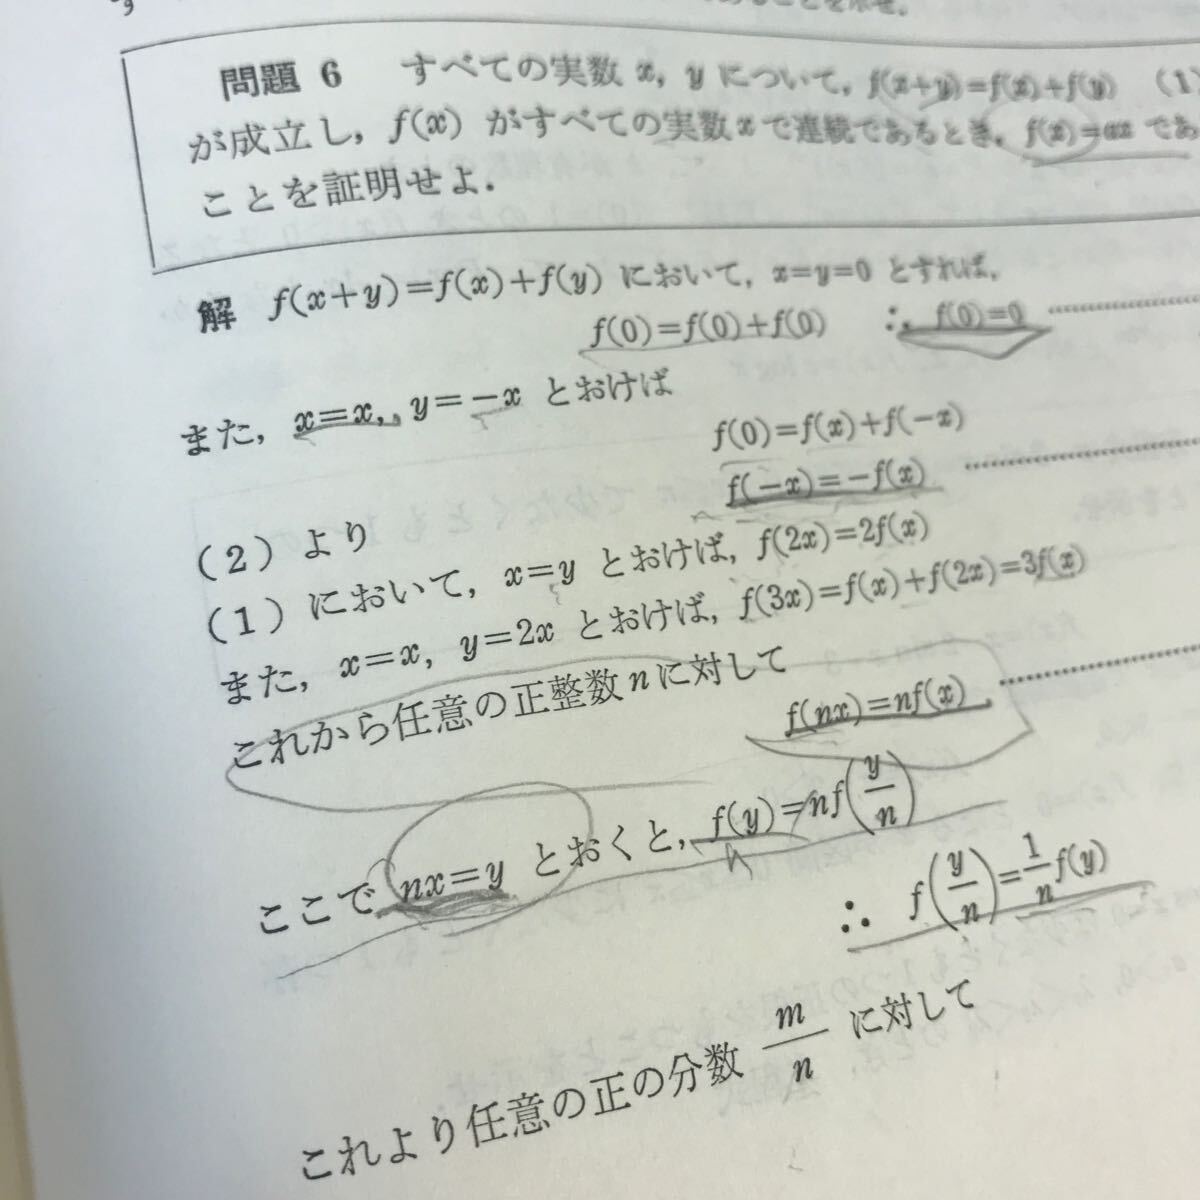 問題 6 すべての実数 x, y について, f(x+y)=f(x)+f(y) (1)
が成立し, f(x) がすべての実数 x で連続であるとき, f(x)=ax であ
ことを証明せよ.
解 f(x+y)=f(x)+f(y) において, x=y=0 とすれば,
f(0)=f(0)+f(0) ∴ f(0)=0 ……
また, x=x, y=−x とおけば
f(0)=f(x)+f(−x)
f(−x)=−f(x) ……
(2) より
(1) において, x=y とおけば, f(2x)=2f(x)
また, x=x, y=2x とおけば, f(3x)=f(x)+f(2x)=3f(x)
これから任意の正整数 n に対して
f(nx)=nf(x) ……
ここで nx=y とおくと, f(y)=nf(y/n)
n
∴ f(y/n)=1/n f(y)
これより任意の正の分数 m/n に対して